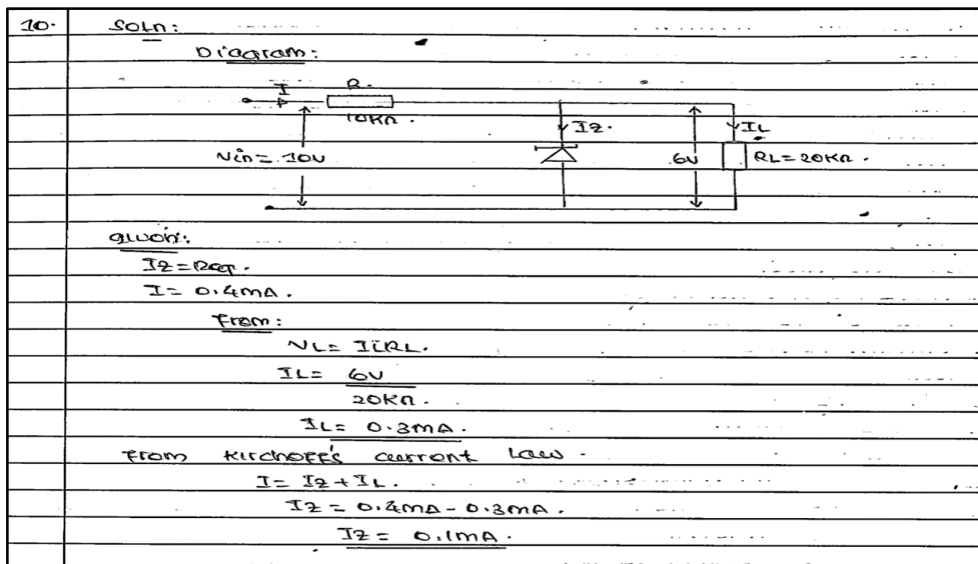 10. Soln:
Diagram:
I R.
10KΩ.
IZ. IL
Vin = 10V 6V RL = 20KΩ.
given:
IZ = Req.
I = 0.4mA.
From:
VL = ILRL.
IL = 6V
20KΩ.
IL = 0.3mA.
From Kirchoff's current law.
I = IZ + IL.
IZ = 0.4mA - 0.3mA.
IZ = 0.1mA.